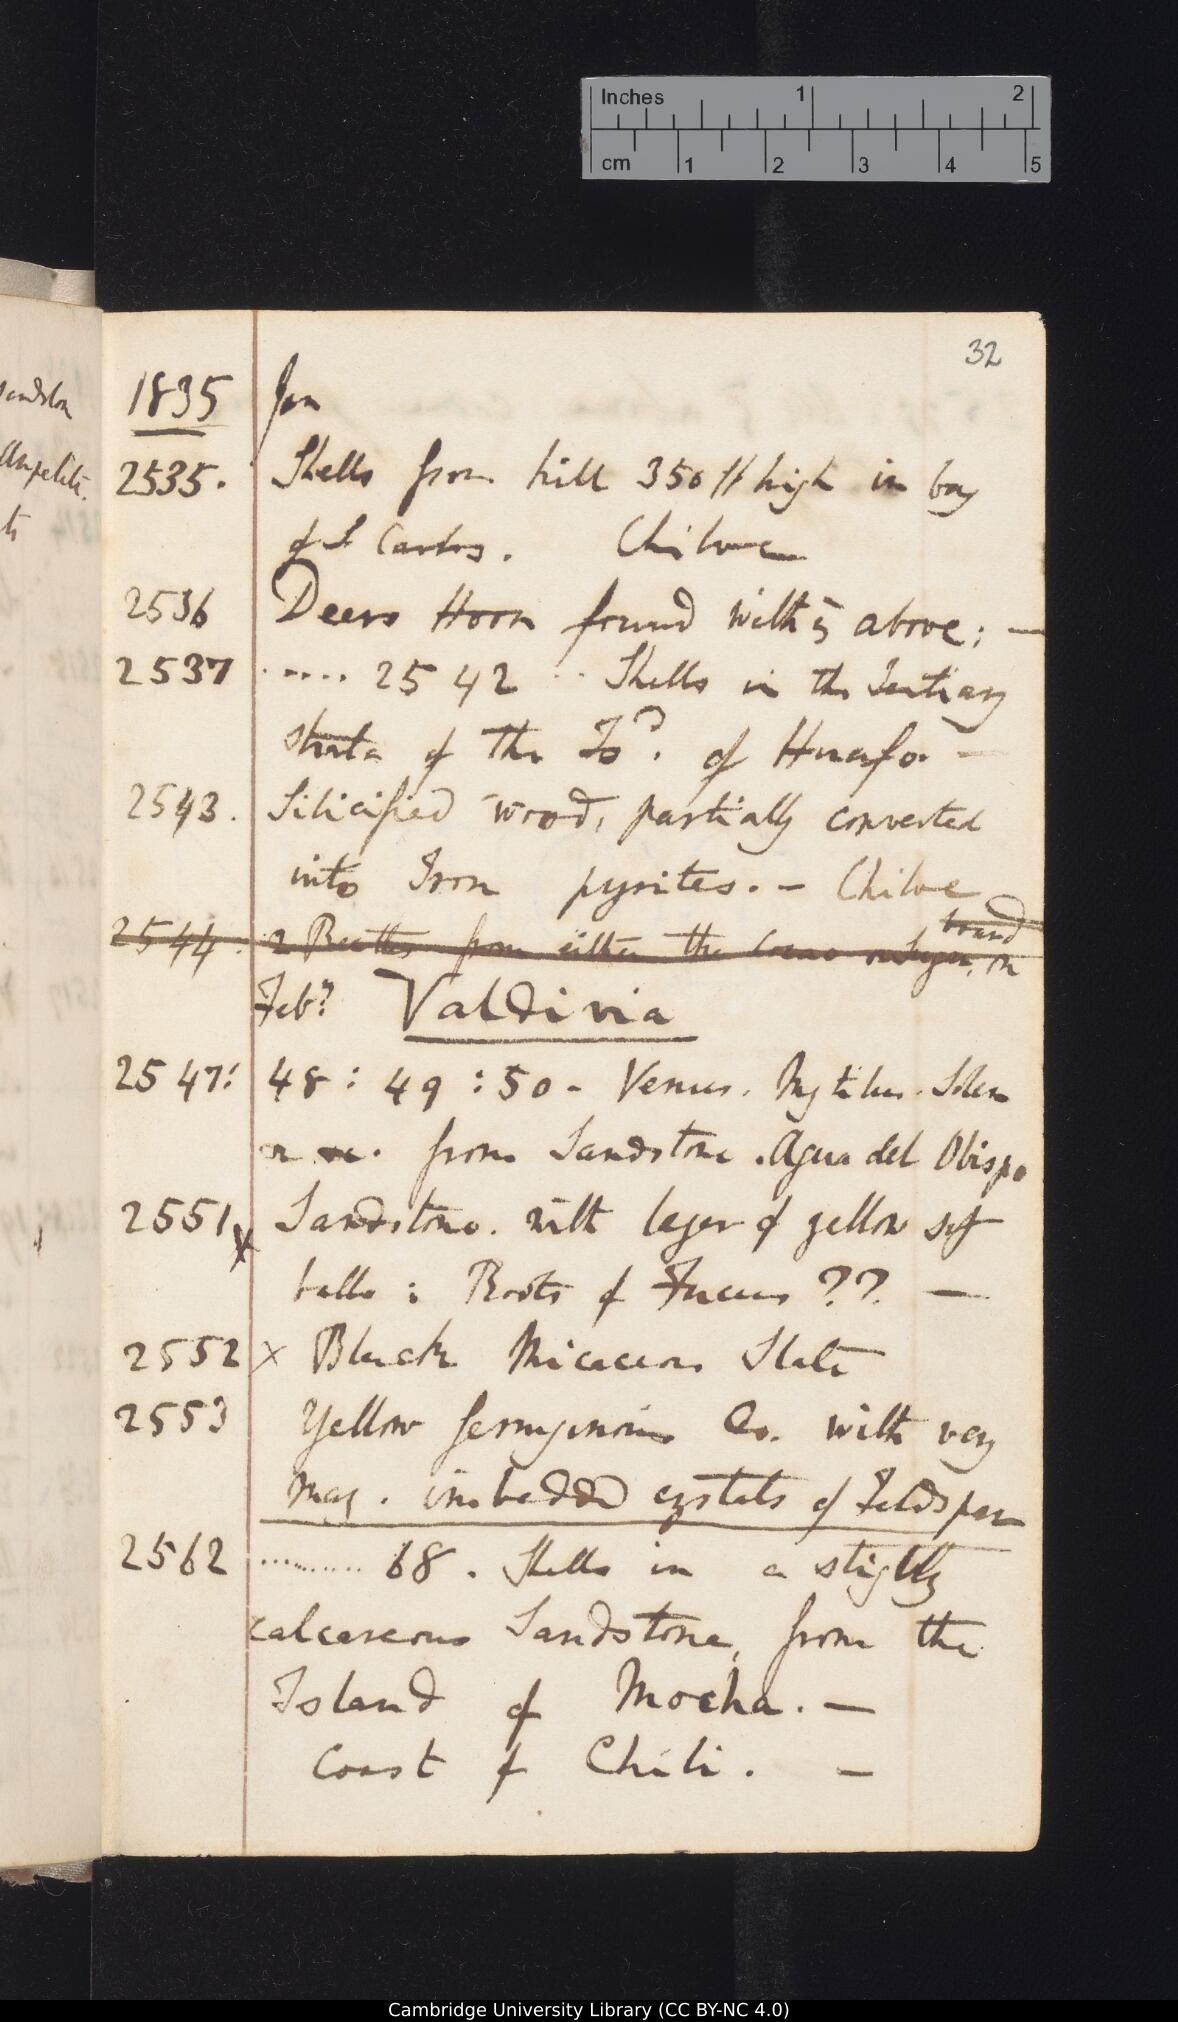 Inches 1 2
cm 1 2 3 4 5
32
sandston
1835 Jan
2535. Shells from hill 350 ft high in bay
of S. Carlos. Chiloe
2536 Deers Horn found with above; —
2537 ..... 2542 .. Shells in the Tertiary
strata of the Isd. of Huafo. —
2543. Silicified wood, partially converted
into Iron pyrites. — Chiloe
board
2544. 2 Beetles from either the Cocao or Sugar, on
Feb? Valdivia
2547: 48: 49: 50 - Venus. Mytilus. Solen
&c. from Sandstone. Agua del Obispo
2551 x Sandstone. with layer of yellow soft
balls: Roots of Fucus ??. —
2552 x Black Micaceous Slate
2553 Yellow ferruginous Do. with very
many. imbedded crystals of Feldspar
2562 .......... 68. Shells in a slightly
calcareous Sandstone, from the
Island of Mocha. —
Coast of Chili. —
Cambridge University Library (CC BY-NC 4.0)